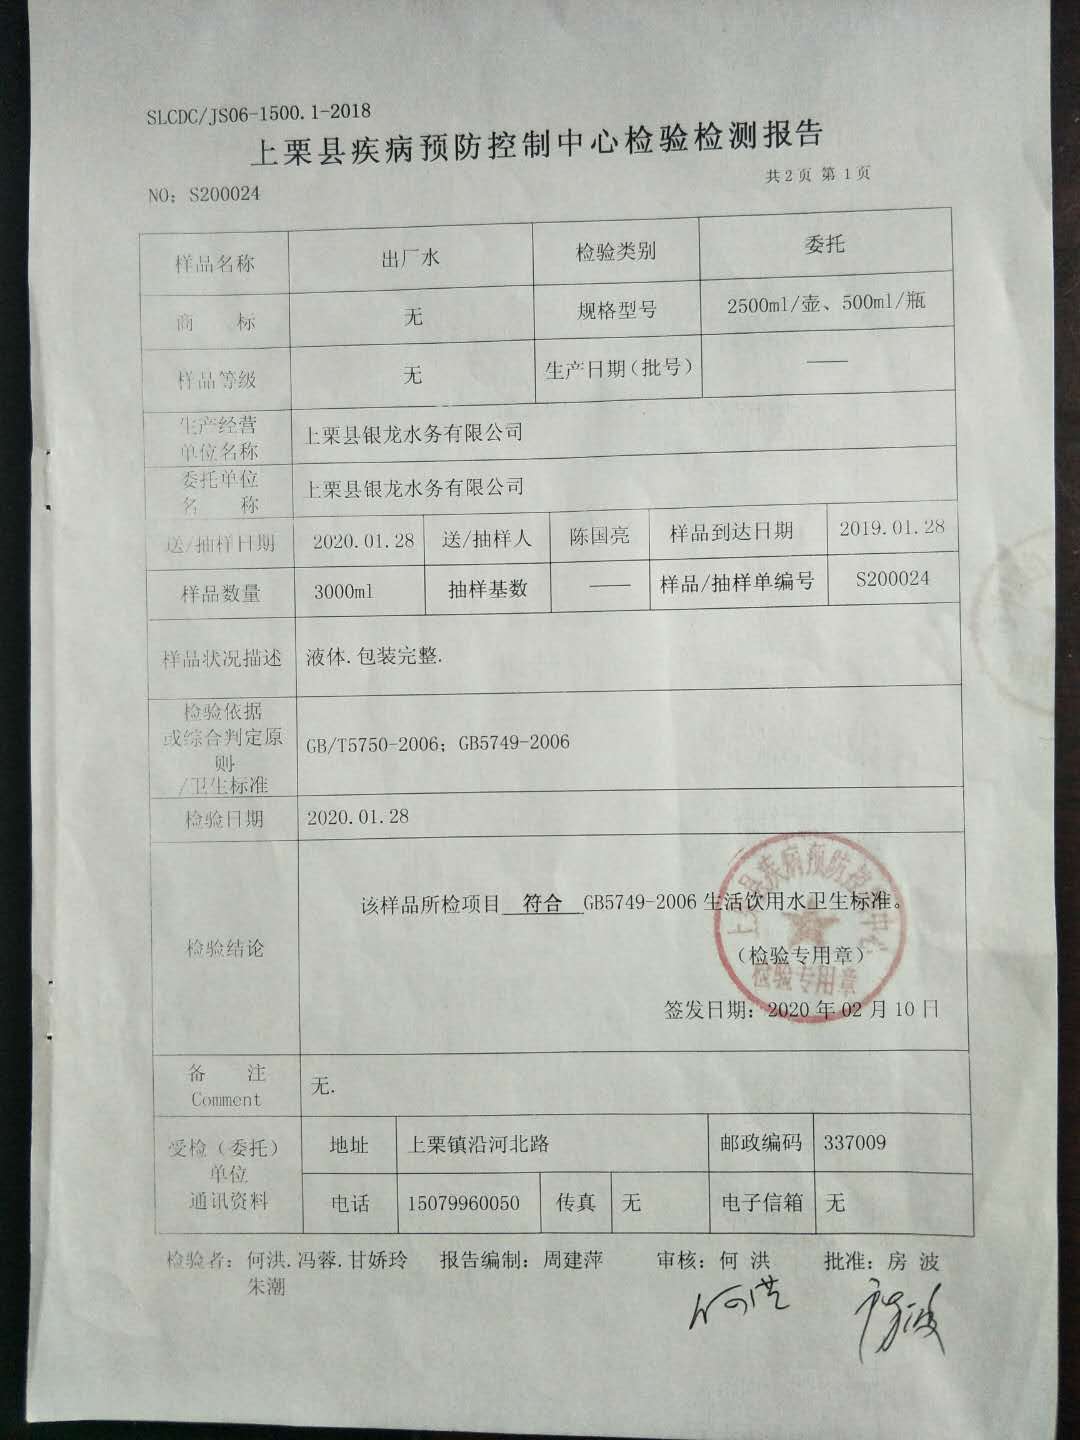 SLCDC/JS06-1500.1-2018
上栗县疾病预防控制中心检验检测报告
共2页 第1页
NO：S200024
样品名称 出厂水 检验类别 委托
商 标 无 规格型号 2500ml/壶、500ml/瓶
样品等级 无 生产日期（批号） ——
生产经营
单位名称 上栗县银龙水务有限公司
委托单位
名 称 上栗县银龙水务有限公司
送/抽样日期 2020.01.28 送/抽样人 陈国亮 样品到达日期 2019.01.28
样品数量 3000ml 抽样基数 —— 样品/抽样单编号 S200024
样品状况描述 液体.包装完整.
检验依据
或综合判定原
则
/卫生标准 GB/T5750-2006；GB5749-2006
检验日期 2020.01.28
检验结论 该样品所检项目 符合 GB5749-2006生活饮用水卫生标准。
（检验专用章）
上栗县疾病预防控制中心
检验专用章
签发日期：2020年02月10日
备 注
Comment 无.
受检（委托）
单位
通讯资料 地址 上栗镇沿河北路 邮政编码 337009
电话 15079960050 传真 无 电子信箱 无
检验者：何洪.冯蓉.甘娇玲 报告编制：周建萍 审核：何 洪 批准：房 波
朱潮
何洪 房波